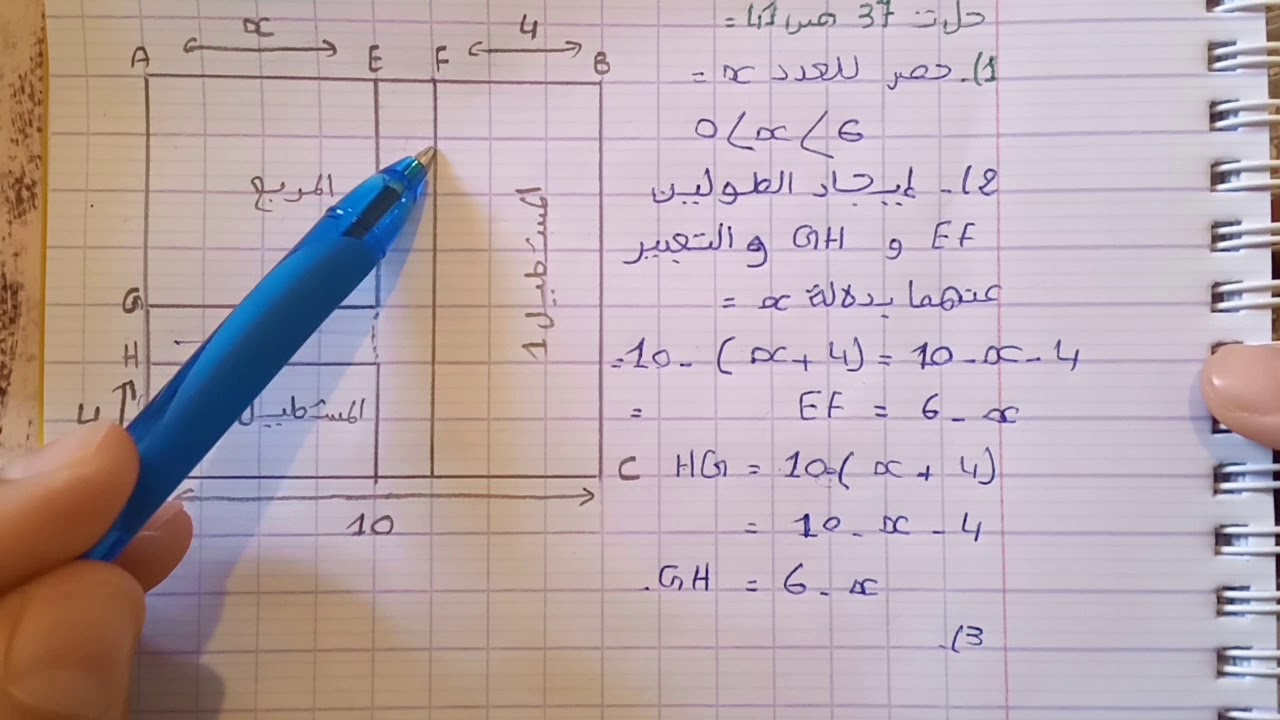 حل ت 37 ص 41 =
1). حصر للعدد x =
0 < x < 6
2). إيجاد الطولين
EF و GH والتعبير
عنهما بدلالة x =
= 10 - (x + 4) = 10 - x - 4
= EF = 6 - x
HG = 10 - (x + 4)
= 10 - x - 4
. GH = 6 - x
3).
x 4
A E F B
المربع
المستطيل 1
G
H
4
المستطيل
C
10